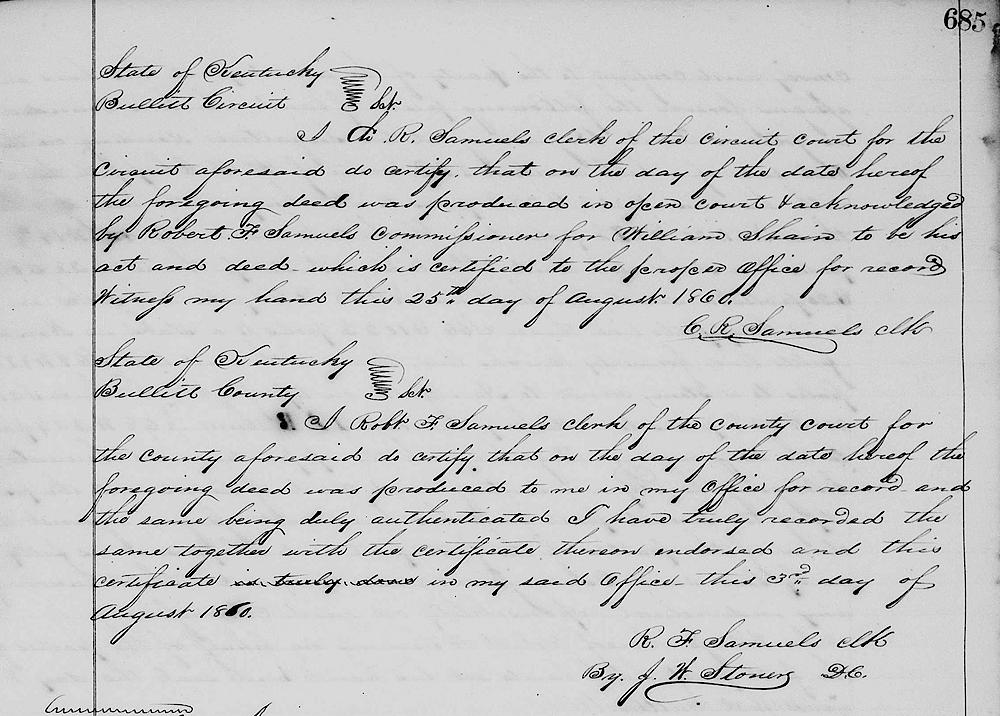 685
State of Kentucky
Bullitt Circuit } Sct.
I Ch. R. Samuels clerk of the circuit court for the
circuit aforesaid do certify that on the day of the date hereof
the foregoing deed was produced in open court & acknowledged
by Robert F Samuels commissioner for William Shain to be his
act and deed - which is certified to the proper office for record
Witness my hand this 25th day of August 1860.
C. R. Samuels clk
State of Kentucky
Bullitt County } Sct.
I Robt F. Samuels clerk of the county court for
the county aforesaid do certify that on the day of the date hereof the
foregoing deed was produced to me in my office for record - and
the same being duly authenticated I have truly recorded the
same together with the certificate thereon endorsed and this
certificate is truly done in my said office - this 3rd day of
August 1860.
R. F. Samuels clk
By. J. W. Stoner D.C.